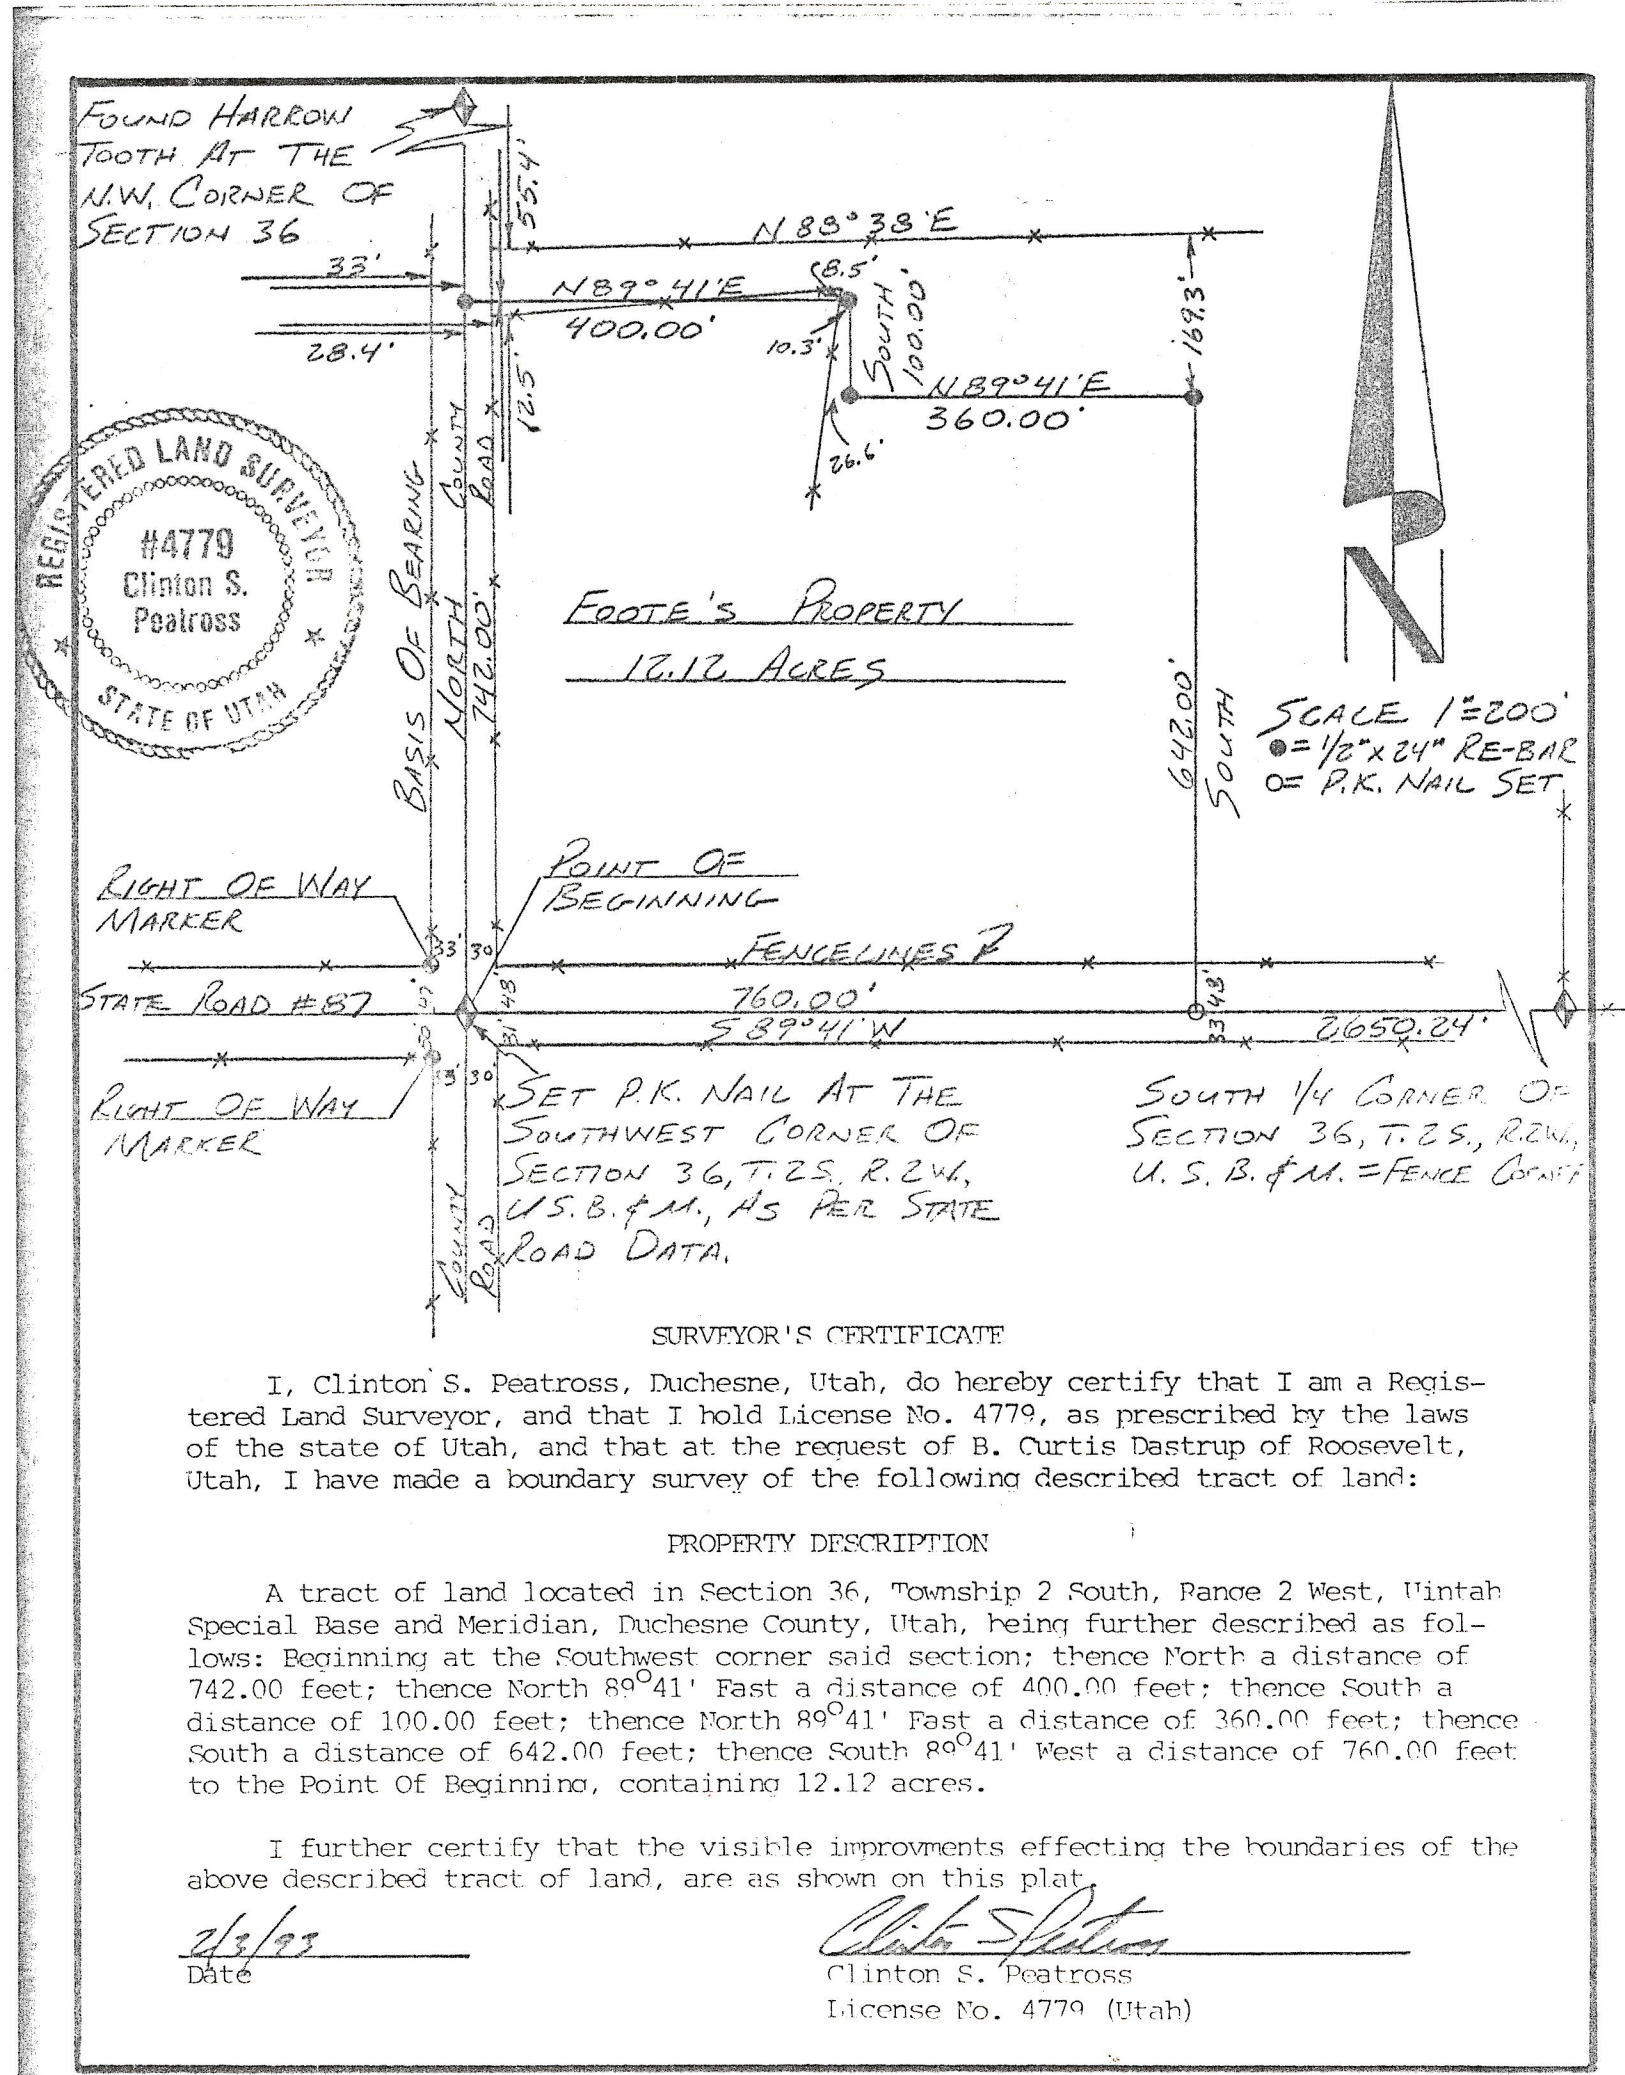 FOUND HARROW
TOOTH AT THE
N.W. CORNER OF
SECTION 36
55.4'
N 88° 38'E
33'
N 89° 41'E
8.5'
400.00'
28.4'
10.3'
SOUTH
100.00'
169.3'
12.5'
N 89° 41'E
360.00'
26.6'
REGISTERED LAND SURVEYOR
#4779
Clinton S.
Peatross
STATE OF UTAH
BASIS OF BEARING
NORTH
742.00'
COUNTY
ROAD
FOOTE'S PROPERTY
12.12 ACRES
642.00'
SOUTH
N
SCALE 1"=200'
●= 1/2" X 24" RE-BAR
O= P.K. NAIL SET
RIGHT OF WAY
MARKER
POINT OF
BEGINNING
33' 30'
FENCELINES
STATE ROAD #87
47'
48'
760.00'
S 89° 41' W
31'
33' 48'
2650.24'
33' 30'
RIGHT OF WAY
MARKER
SET P.K. NAIL AT THE
SOUTHWEST CORNER OF
SECTION 36, T. 2 S. R. 2 W.,
U.S. B. & M., AS PER STATE
ROAD DATA.
SOUTH 1/4 CORNER OF
SECTION 36, T. 2 S., R. 2 W.,
U. S. B. & M. = FENCE CORNER
COUNTY
ROAD
SURVEYOR'S CERTIFICATE
I, Clinton S. Peatross, Duchesne, Utah, do hereby certify that I am a Regis-
tered Land Surveyor, and that I hold License No. 4779, as prescribed by the laws
of the state of Utah, and that at the request of B. Curtis Dastrup of Roosevelt,
Utah, I have made a boundary survey of the following described tract of land:
PROPERTY DESCRIPTION
A tract of land located in Section 36, Township 2 South, Range 2 West, Uintah
Special Base and Meridian, Duchesne County, Utah, being further described as fol-
lows: Beginning at the Southwest corner said section; thence North a distance of
742.00 feet; thence North 89°41' East a distance of 400.00 feet; thence South a
distance of 100.00 feet; thence North 89°41' East a distance of 360.00 feet; thence
South a distance of 642.00 feet; thence South 89°41' West a distance of 760.00 feet
to the Point Of Beginning, containing 12.12 acres.
I further certify that the visible improvments effecting the boundaries of the
above described tract of land, are as shown on this plat.
2/3/93
Clinton S Peatross
Date
Clinton S. Peatross
License No. 4779 (Utah)